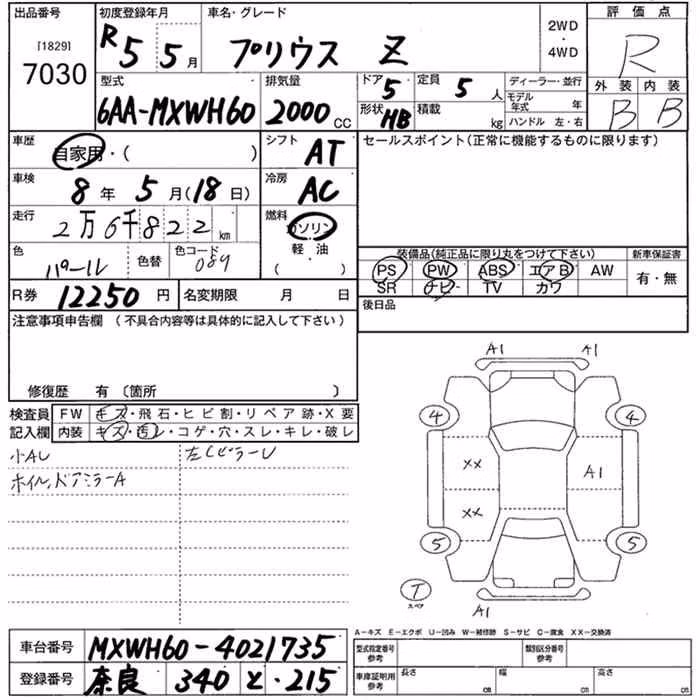 出品番号
[1829]
7030
初度登録年月
R5 5月
車名・グレード
プリウス Z
2WD
・
4WD
評価点
R
外装 内装
B B
型式
6AA-MXWH60
排気量
2000 CC
ドア
5
形状
HB
定員
5人
積載
kg
ディーラー・並行
モデル年式 年
ハンドル 左・右
車歴
自家用・( )
シフト
AT
車検
8年 5月(18日)
冷房
AC
走行
2万6千822 km
燃料
ガソリン
軽・油
( )
色
パール
色替
色コード
089
R券 12250円
名変期限 月 日
セールスポイント(正常に機能するものに限ります)
装備品(純正品に限り丸をつけて下さい)
新車保証書
PS PW ABS エアB AW
SR ナビ TV カワ
有・無
後日品
注意事項申告欄 (不具合内容等は具体的に記入して下さい)
修復歴 有 〔箇所 〕
検査員
記入欄
FW キズ・飛石・ヒビ割・リペア跡・X要
内装 キズ・汚レ・コゲ・穴・スレ・キレ・破レ
小AU
ホイル、ドアミラーA
左Cピラーレ
A1 A1
4 4
XX A1
XX
5 5
T
スペア
A1
A-キズ E-エクボ U-凹み W-補修跡 S-サビ C-腐食 XX-交換済
車台番号 MXWH60-4021735
登録番号 奈良 340 と ・215
型式指定番号
参考
類別区分番号
参考
車庫証明用
参考
長さ cm
幅 cm
高さ cm